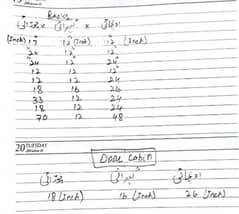 Racks
چوڑائی x گہرائی x اونچائی
(Inch) 17" 12" (Inch) 12" (Inch)
24 12" 24"
24 12" 26"
12 12 12"
12 12 24
18 16 26
33 12 24
18 12 24
70 12 48
20 TUESDAY
Door Cabin
چوڑائی گہرائی اونچائی
18 (Inch) 16 (Inch) 26 (Inch)